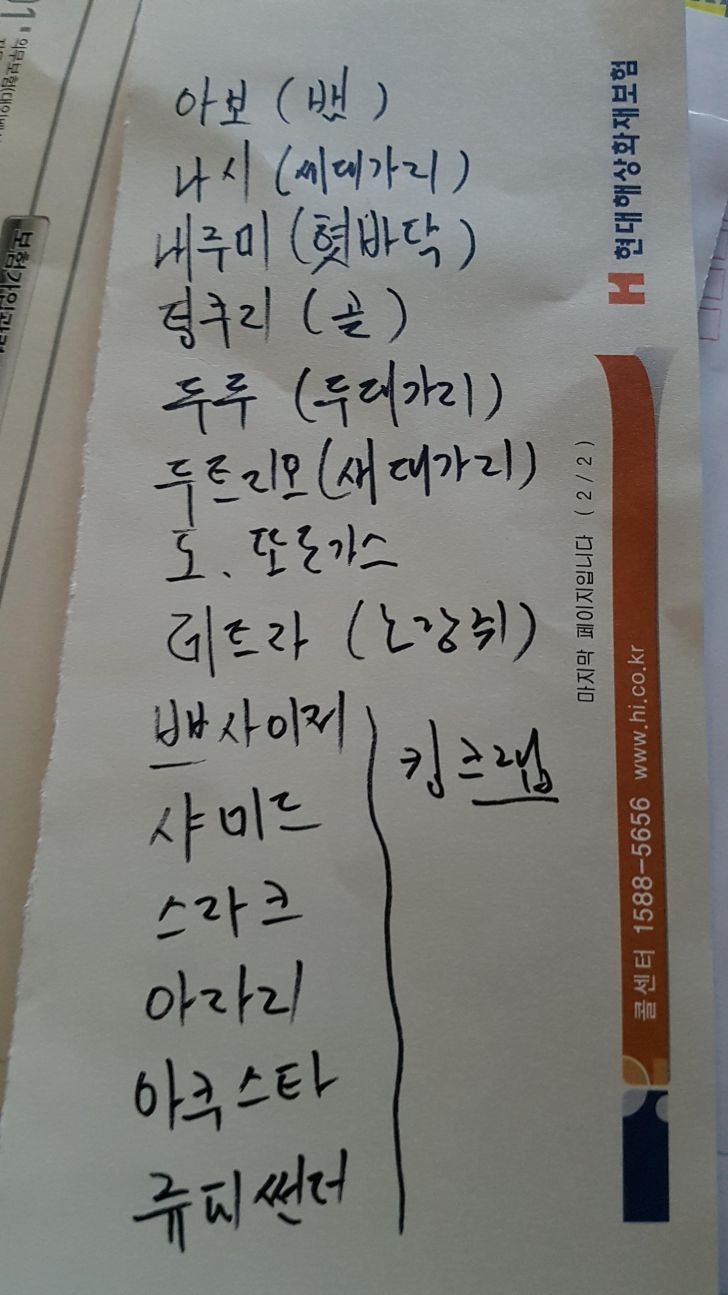 아보 (뱀)
나시 (세대가리)
내루미 (혓바닥)
텅쿠리 (골)
두두 (두대가리)
두트리오 (새대가리)
도. 또르가스
레트라 (노랑쥐)
뿌사이져
샤미드
스라크
아라리
아쿠스타
쥬피썬더
킹크랩
현대해상화재보험
마지막 페이지입니다 ( 2 / 2 )
콜센터 1588-5656 www.hi.co.kr